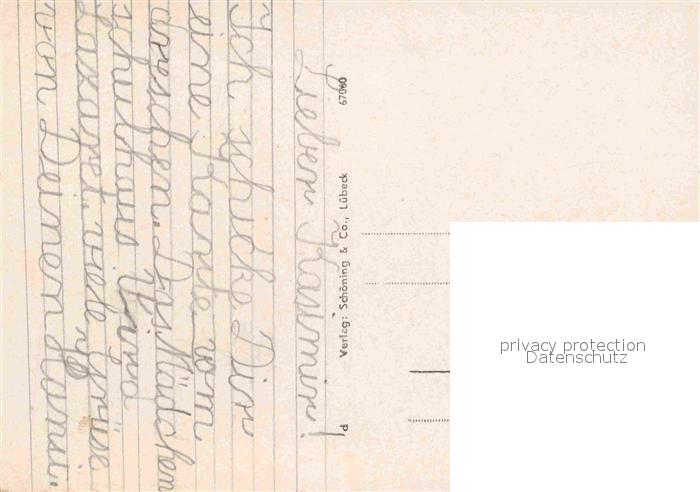 Lieber Kasimir!
Ich schicke Dir
eine Karte vom
Das Mädchen
schulhaus
Lazarett. viele Grüße
von Deinem
Verlag: Schöning & Co., Lübeck
67060
d
privacy protection
Datenschutz